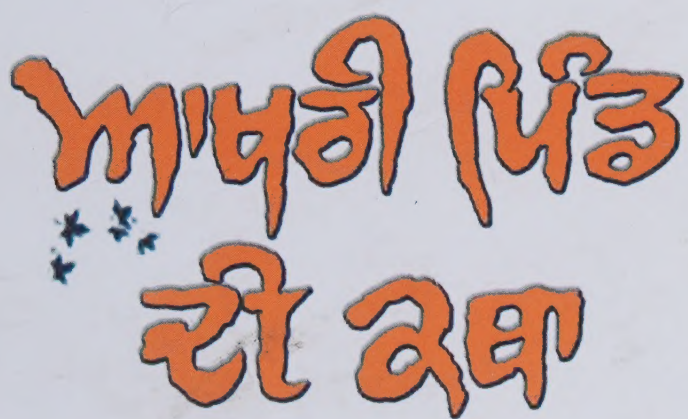 ਆਖਰੀ ਪਿੰਡ
ਦੀ ਕਥਾ